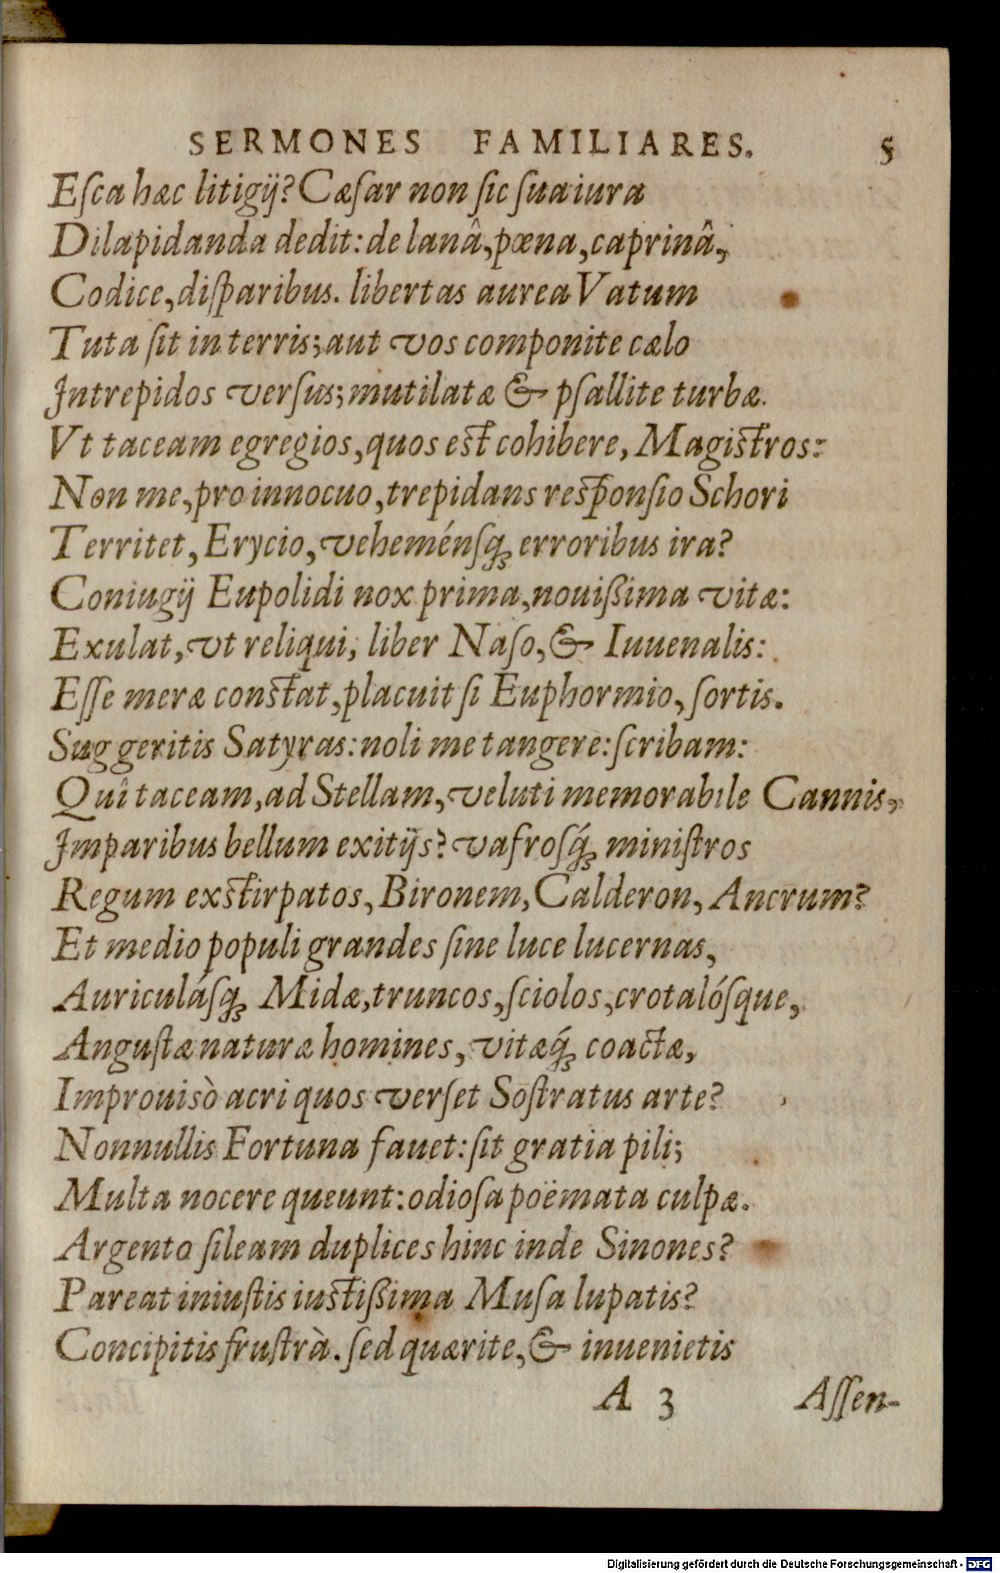 SERMONES FAMILIARES. 5
Eſca hæc litigij? Cæſar non ſic ſua iura
Dilapidanda dedit: de lanâ, pœna, caprinâ,
Codice, diſparibus. libertas aurea Vatum
Tuta ſit in terris; aut vos componite cælo
Intrepidos verſus; mutilatæ & pſallite turbæ.
Vt taceam egregios, quos eſt cohibere, Magiſtros:
Non me, pro innocuo, trepidans reſponſio Schori
Territet, Erycio, veheménſq; erroribus ira?
Coniugij Eupolidi nox prima, nouiſſima vitæ:
Exulat, vt reliqui, liber Naſo, & Iuuenalis:
Eſſe meræ conſtat, placuit ſi Euphormio, ſortis.
Suggeritis Satyras: noli me tangere: ſcribam:
Quî taceam, ad Stellam, veluti memorabile Cannis,
Imparibus bellum exitijs? vafroſq́; miniſtros
Regum exſtirpatos, Bironem, Calderon, Ancrum?
Et medio populi grandes ſine luce lucernas,
Auriculáſq; Midæ, truncos, ſciolos, crotalóſque,
Anguſtæ naturæ homines, vitæq́; coactæ,
Improuisò acri quos verſet Soſtratus arte?
Nonnullis Fortuna fauet: ſit gratia pili;
Multa nocere queunt: odioſa poëmata culpæ.
Argento ſileam duplices hinc inde Sinones?
Pareat iniuſtis iuſtiſſima Muſa lupatis?
Concipitis fruſtrà. ſed quærite, & inuenietis
A 3 Aſſen-
Digitalisierung gefördert durch die Deutsche Forschungsgemeinschaft - DFG